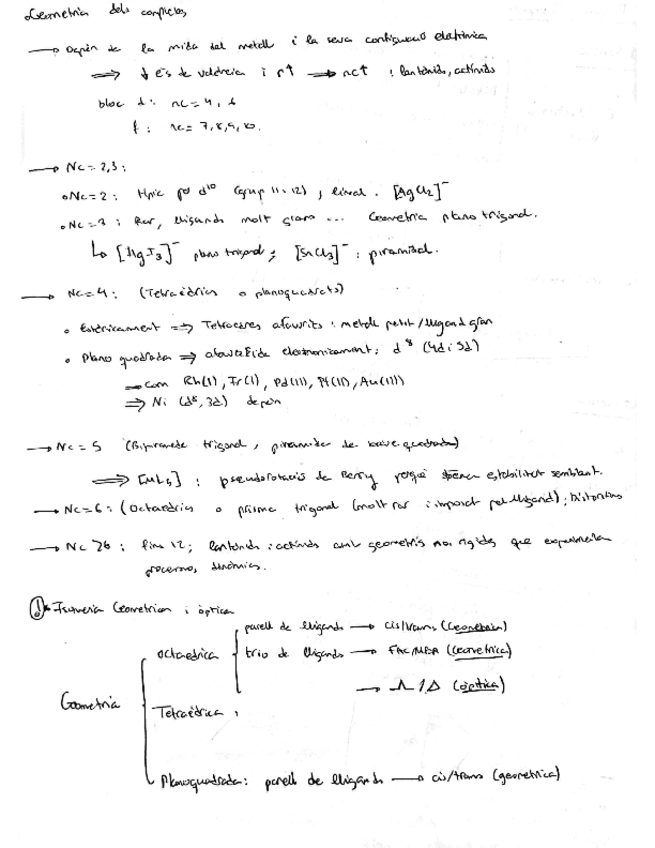 Geometria dels complexos
→ Depèn de la mida del metall i la seva configuració eletrònica
⇒ ↓ e⁻s de valència i r↑ → nc↑ : lantànids, actínids
bloc d: nc = 4, 6
f: nc = 7,8,9,10.
→ Nc = 2,3:
• Nc = 2: típic per d¹⁰ (grup 11-12), lineal. [AgCl₂]⁻
• Nc = 3: Rar, lligands molt grans ... Geometria plano trigonal.
↳ [HgI₃]⁻ plano trigonal; [SnCl₃]⁻: piramidal.
→ Nc = 4: (Tetraèdrics o planoquadrats)
• Estèricament ⇒ Tetraedres afavorits: metall petit / lligand gran
• Plano quadrada ⇒ electronicament; d⁸ (4d i 5d)
→ Com Rh(I), Ir(I), Pd(II), Pt(II), Au(III)
⇒ Ni (d⁸, 3d) depèn
→ Nc = 5 (Bipiramide trigonal, piramide de base quadrada)
⇒ [ML₅]: pseudorotació de Berry perquè tenen estabilitat semblant.
→ Nc = 6: (Octaèdrica o prisma trigonal (molt rar i imposat pel lligand);
→ Nc > 6: fins 12; lantànids i actínids amb geometris no rigides que experimenten
processos dinàmics.
① Isomeria Geometrica i òptica
Geometria
octaèdrica
parell de lligands → cis/trans (Geometrica)
trio de lligands → FAC/MER (Geometrica)
→ Λ / Δ (òptica)
Tetraèdrica,
Planoquadrada: parell de lligands → cis/trans (geometrica)